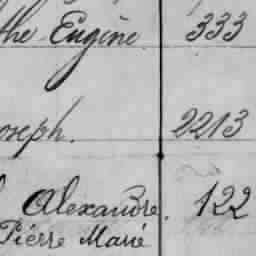 the Eugène 333
oseph. 2213
Alexandre. 122
Pierre Marie